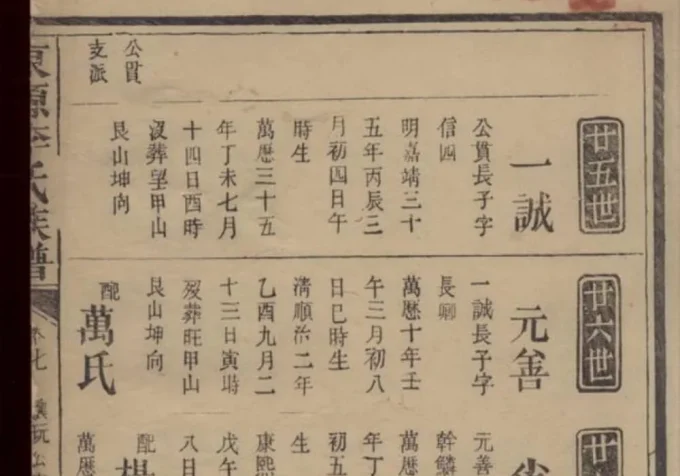 廿五世
一誠
公貫長子字
信四
明嘉靖三十
五年丙辰三
月初四日午
時生
萬曆三十五
年丁未七月
十四日酉時
沒葬望甲山
艮山坤向
公貫
支派
廿六世
元善
一誠長子字
長卿
萬曆十年壬
午三月初八
日巳時生
清順治二年
乙酉九月二
十三日寅塒
歿葬旺甲山
艮山坤向
配
萬氏
廿
元善
幹鱗
萬曆
年丁
初五
生
康熙
戊午
八日
配
楊
萬曆
東源李氏族譜